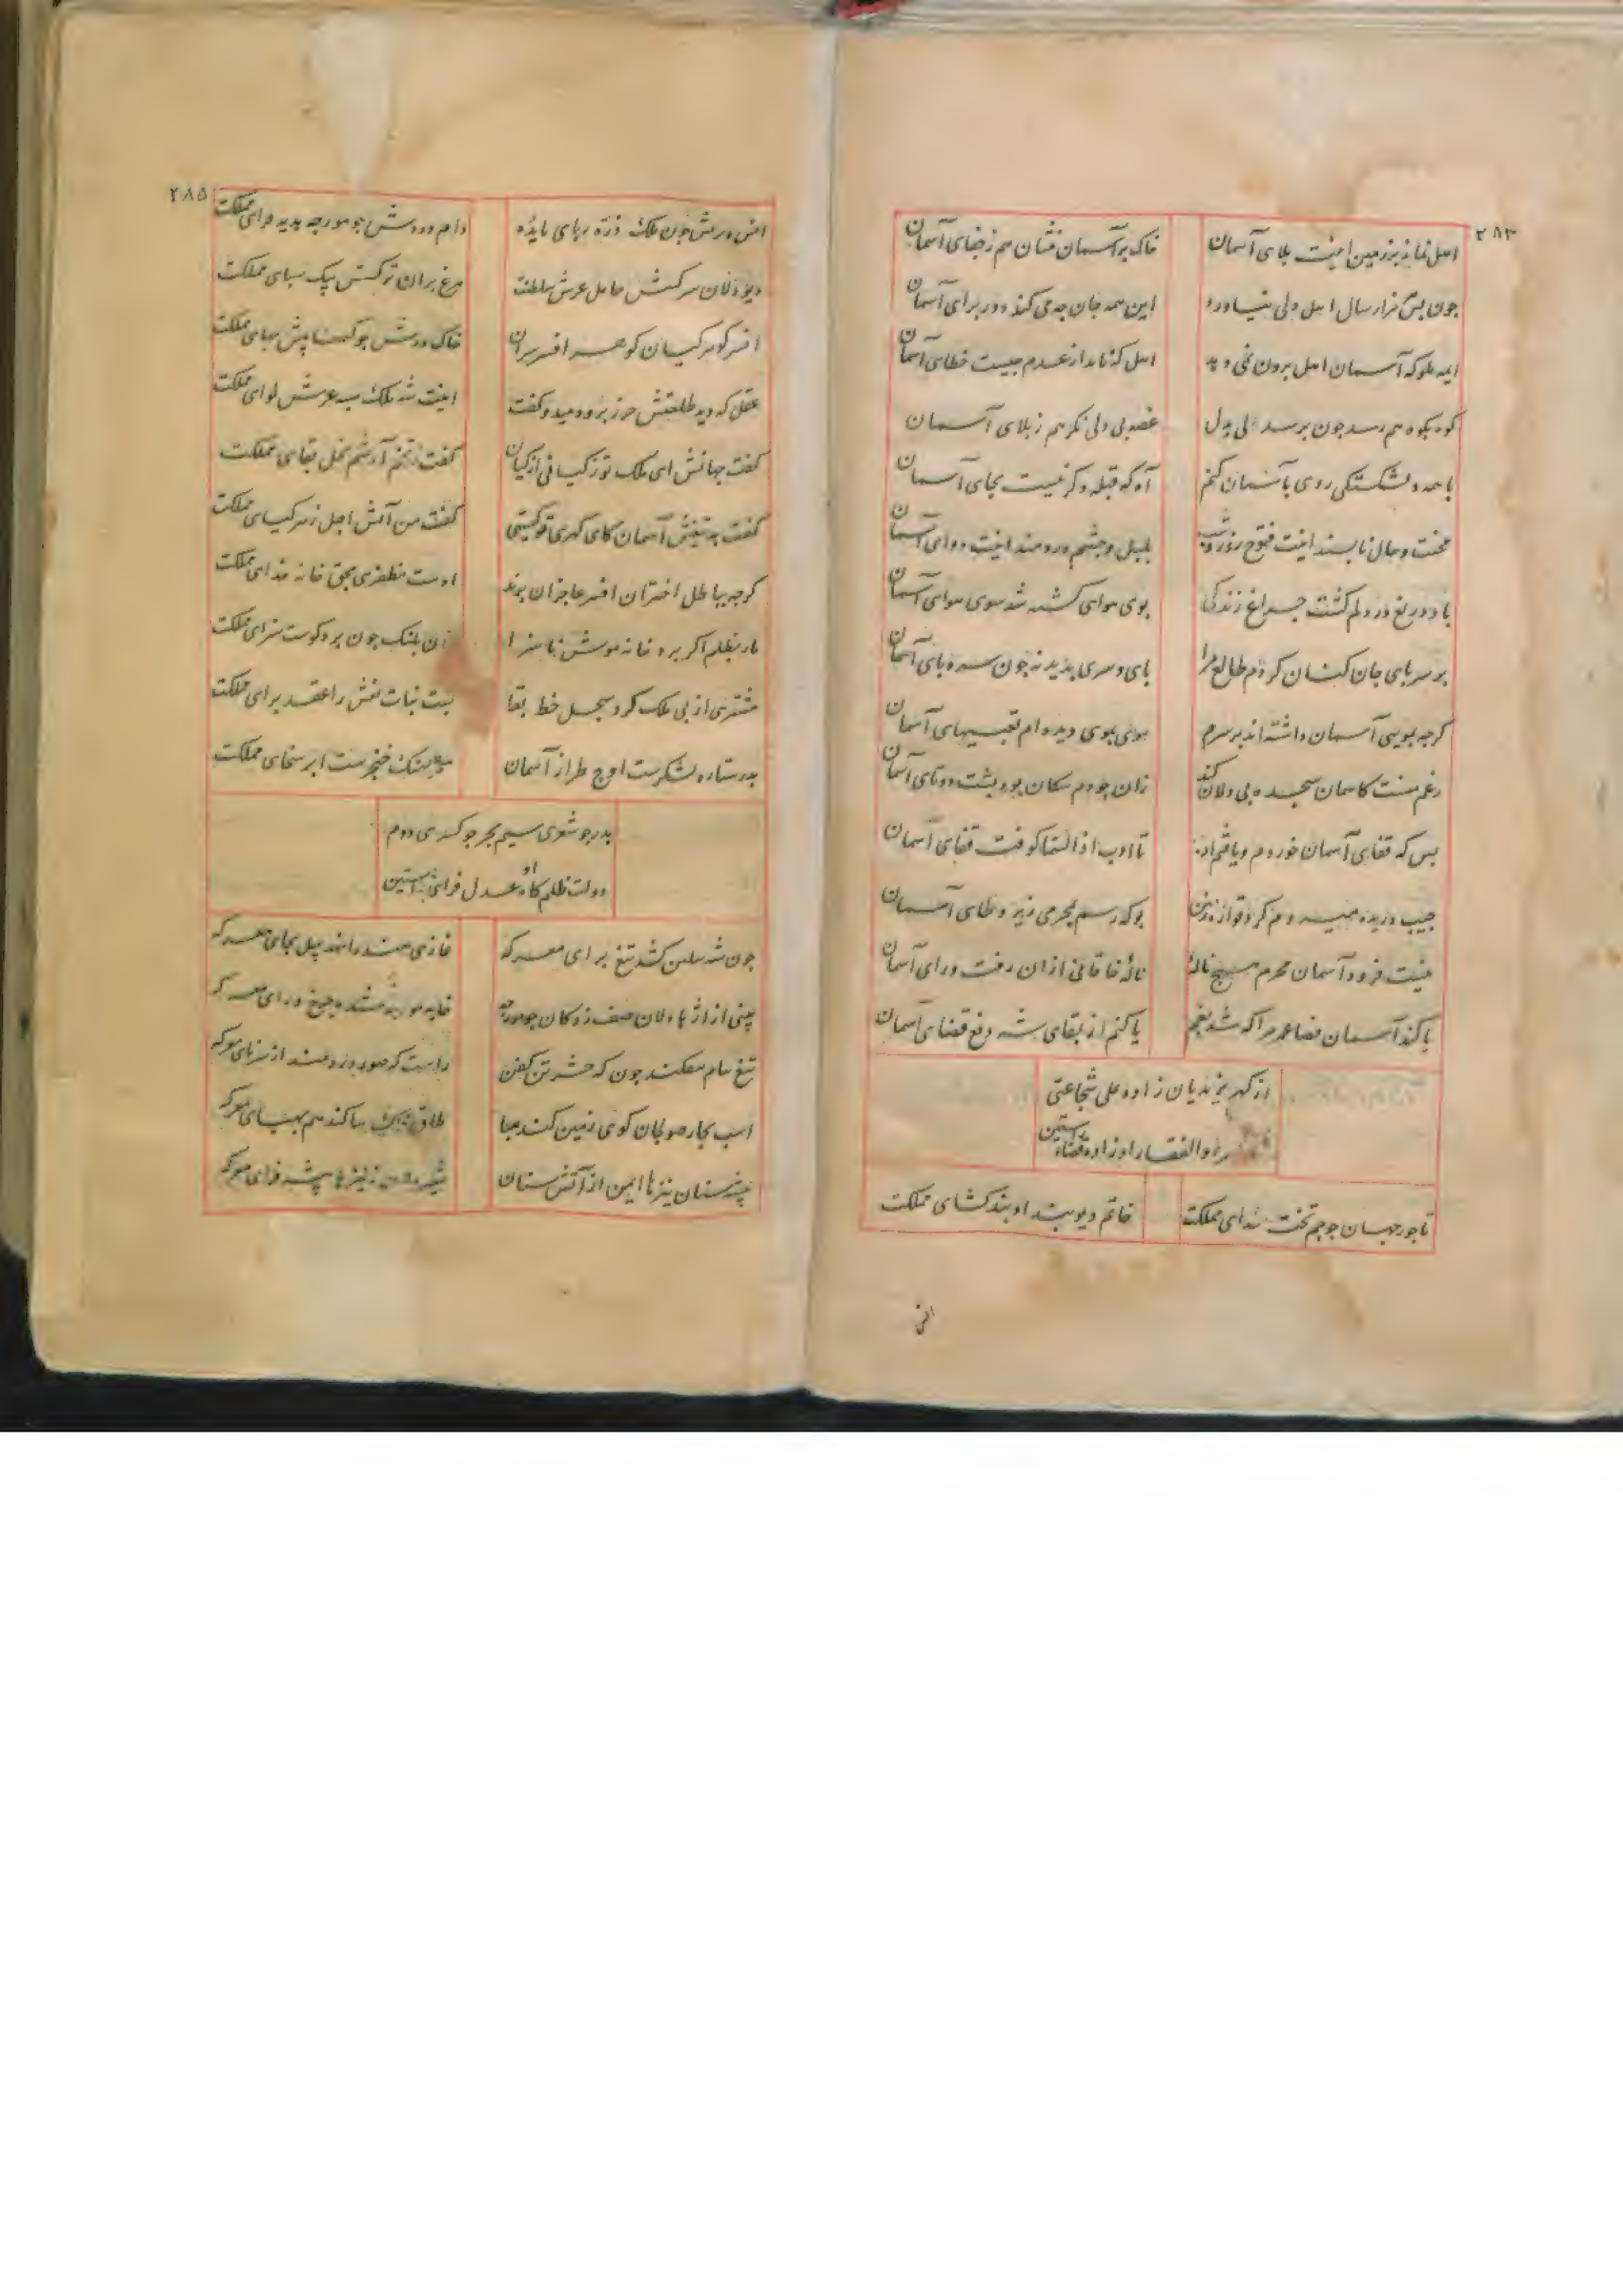 ۲۸۳
اهل نماند بر زمین اینت بلای آسمان خاک بر آسمان فشان هم ز جفای آسمان
جون بس هزار سال اهل دلی نیاورد این همه جان چه می کند دور برای آسمان
ایمه بلوکه آسمان اهل برون نمی دهد اهل که نامد از عدم جیست خطای آسمان
کوه بکوه هم رسد جون برسد دلی بدل غصه دلی نکر هم ز بلای آسمان
با همه دلشکستکی روی بآسمان کنم آه که قبله دکر نیست بجای آسمان
محنت و حال ناپسند اینت فتوح روز و شب بلبل و چشم دردمند اینت دوای آسمان
باد دریغ در دلم کشت جراغ زندکی بوی هوای کشته شد سوی هوای آسمان
بر سر پای جان کنان کردم طالع مرا پای و سری پدید نه جون سر و پای آسمان
کرجه بمویی آسمان داشته اند بر سرم موی بموی دیده ام تعبیهای آسمان
رغم منست کاسمان سجده بی دلان کند زان چو دم سکان بود پشت دوتای آسمان
بس که قفای آسمان خوردم و یافتم ادب تا ادب اذا السما کوفت قفای آسمان
جیب دریده میبـه دم کرد قواره زین بو که رسم بمحرمی زیر وطای آسمان
نیست فرود آسمان محرم هیج نالهٔ نالهٔ خاقانی ازان رفت ورای آسمان
یا کند آسمان قضا عمر مرا که شد بغم یا کنم از بقای شه دفع قضای آسمان
از کهر یزیدیان زاده علی شجاعتی
ذوالفقار او زاده قضاء راستین
تاجور جهان جو جم تخت خدای مملکت خاتم دیوبند او بند کشای مملکت
افس
۲۸۵
افسر سرش جون ملک ذره ربای مایده دام و ددش جو مورجه هدیه فزای مملکت
دیودلان سرکشش حامل عرش سلطنت مرغ پران ترکشش پیک سبای مملکت
افسر کوهر کیان کوهر افسر سران خاک درش جو کیمیا پیش بهای مملکت
عقل که دید طلعتش حرز برو دمید و کفت اینت شه ملک سپه عرش لوای مملکت
کفت جهانش ای ملک تو ز کیانی از کیان کفت ز تخم آرشم نخل بقای مملکت
کفت به تیغش آسمان کای کهری تو کیستی کفت من آتش اجل زهر کیای مملکت
کرچه بباطل اختران افسر عاجزان برند اوست مظفری بحق خانه خدای مملکت
مار بظلم اکر برد خانه موش ناسزا زان بلنک جون برد کوست سزای مملکت
مشتری از پی ملک کرد سجل خط بقا بست بنات نعش را عقد برای مملکت
بدر ستاره لشکرست اوج طراز آسمان بحر نهنک خنجرست ابر سخای مملکت
بدر جو شعری سیم بحر جو کسری دوم
دولت ظلم کاه او عدل فزای راستین
جون شه سلن کشد تیغ برای معرکه غازی هند را نهد پیل بجای معرکه
بینی از اژدها دلان صف زدکان جو مورجه خایه مورجه شده جرخ ورای معرکه
تیغ نیام بفکند جون که حشر تن کفن راست که صور دردمند از سرنای معرکه
اسب بجار صولجان کوی زمین کند هبا طاق فلک بپا کند هم بهبای معرکه
پشه ستان نیزها ایمن از آتش سنان شیر دلان ز نیزها پشه فزای معرکه